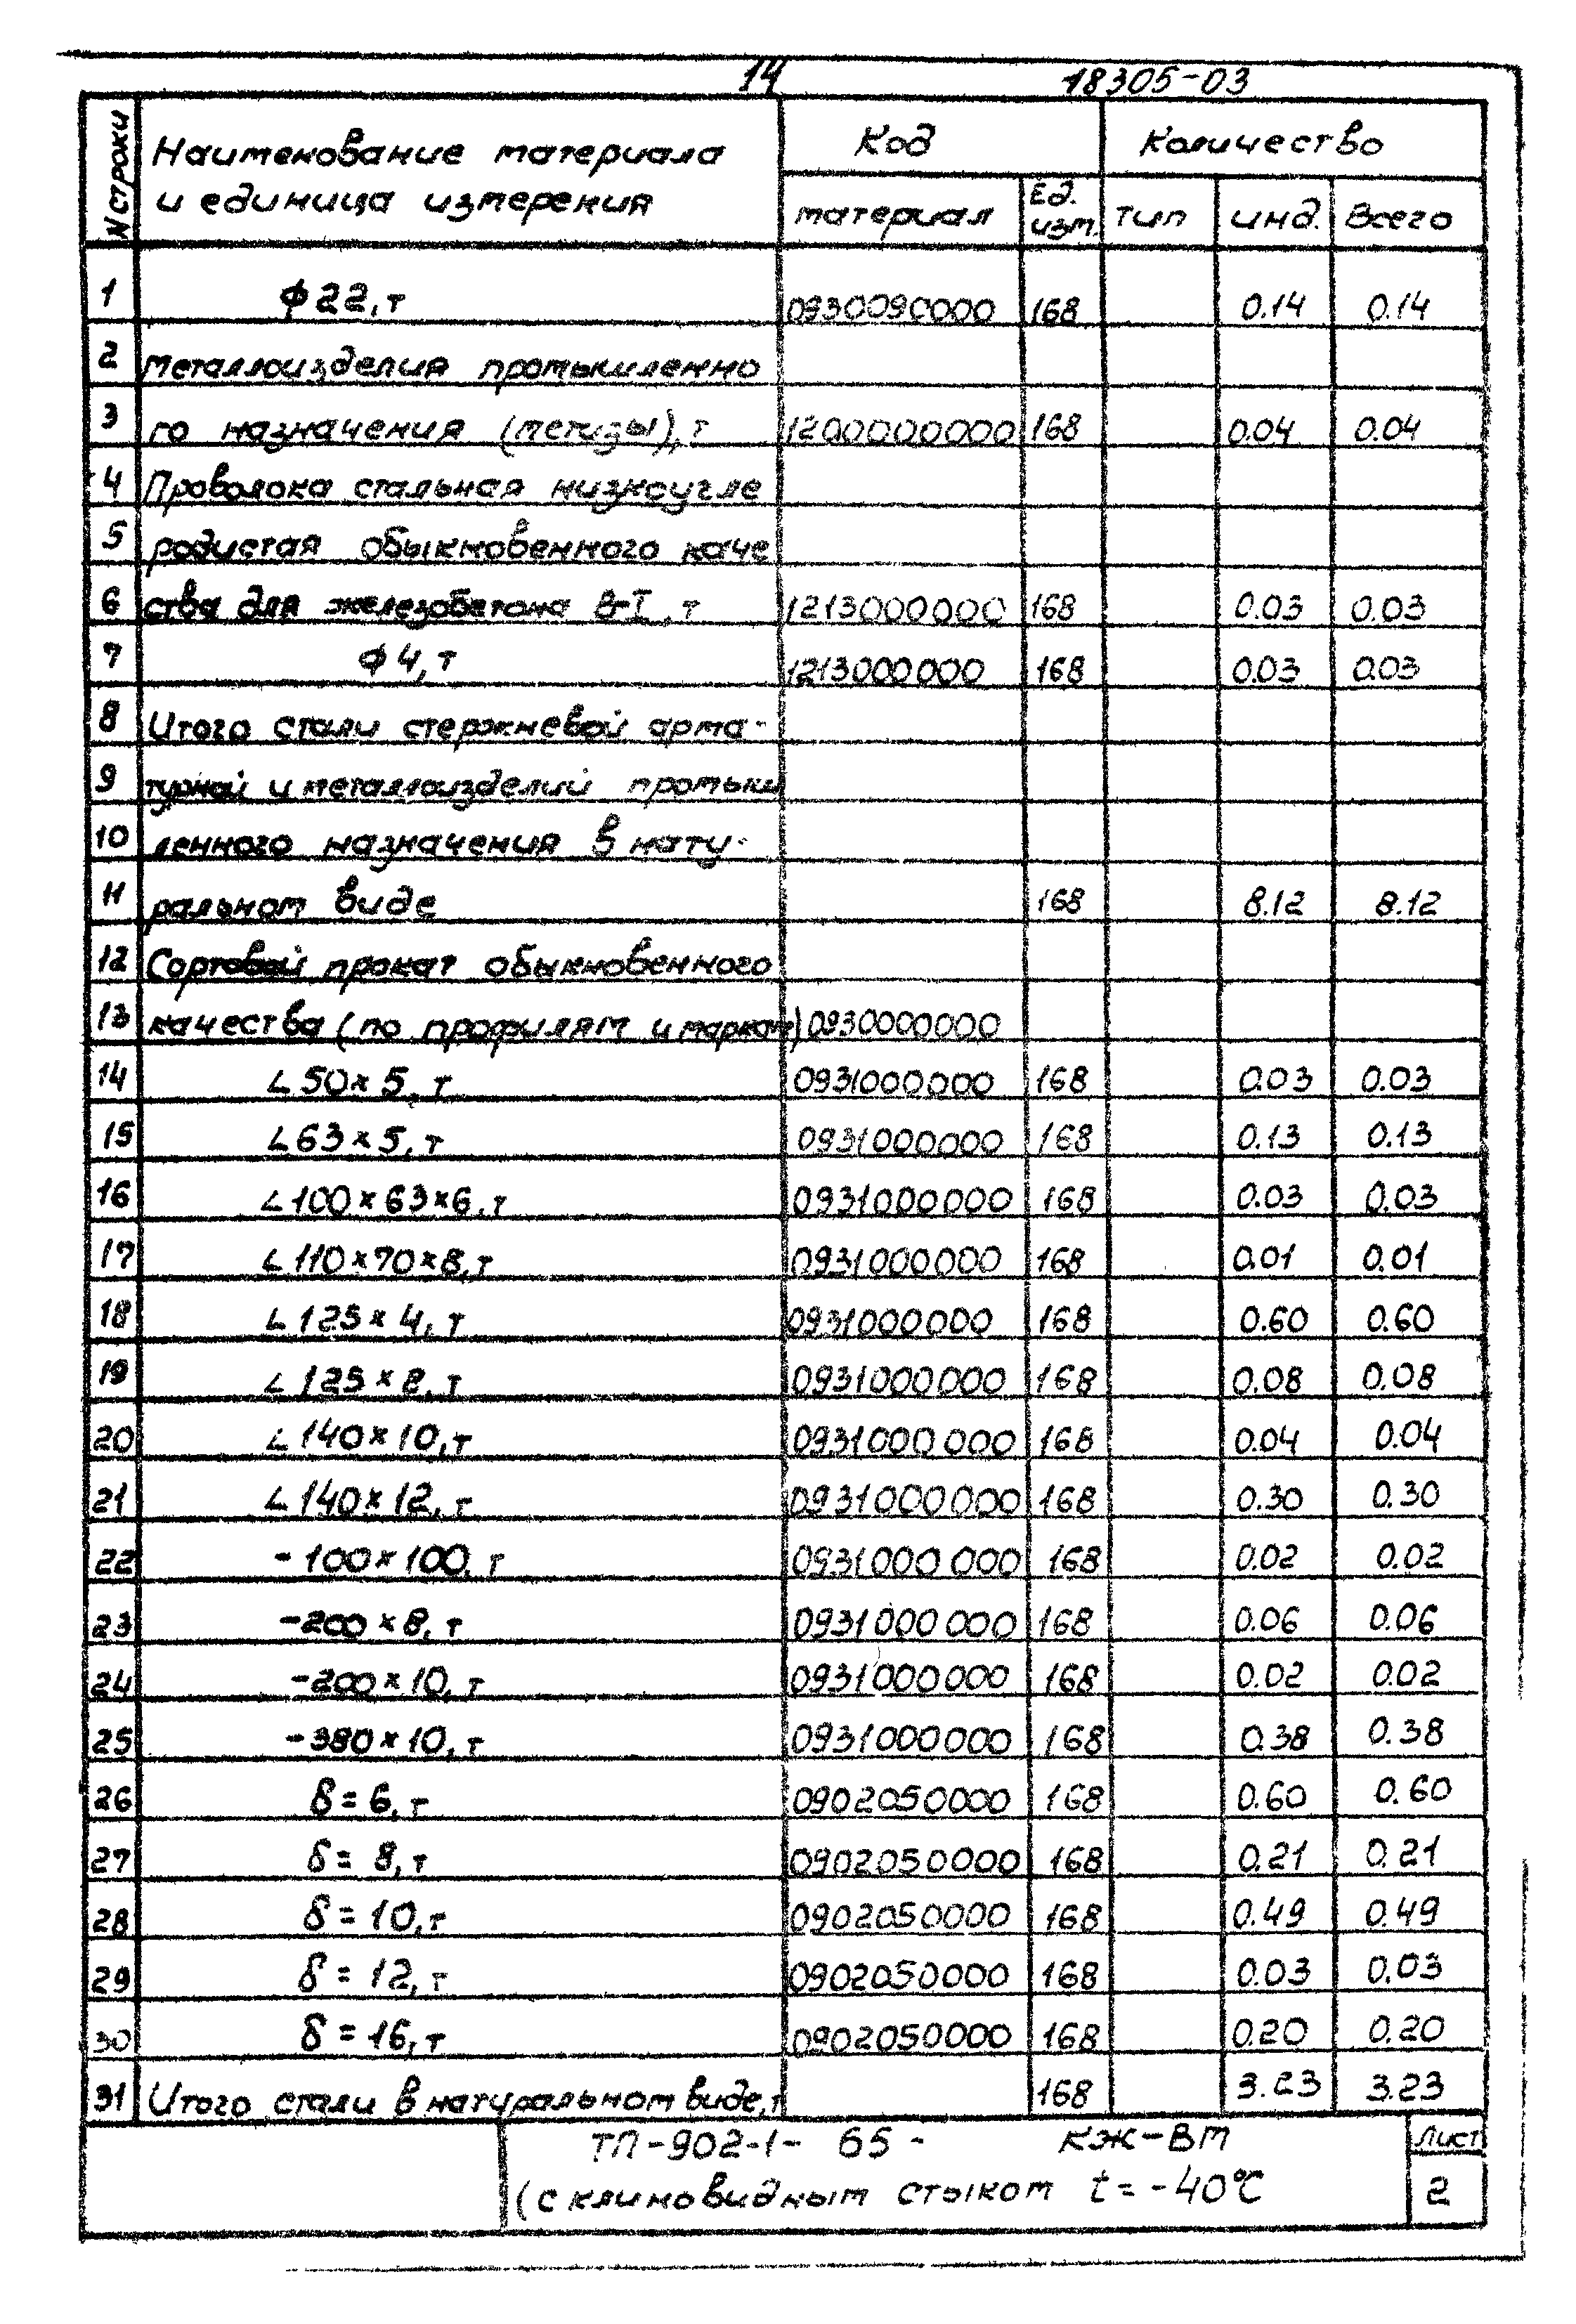 14 18305-03
N строки Наименование материала Код Количество
и единица измерения материал Ед. изм. тип инд. Всего
1 ф22, т 0930090000 168 0.14 0.14
2 металлоизделия промышленно
3 го назначения (метизы), т 1200000000 168 0.04 0.04
4 Проволока стальная низкоугле
5 родистая обыкновенного каче
6 ства для железобетона В-I, т 1213000000 168 0.03 0.03
7 ф4, т 1213000000 168 0.03 0.03
8 Итого стали стержневой арма-
9 турной и металлоизделий промыш
10 ленного назначения в нату-
11 ральном виде 168 8.12 8.12
12 Сортовой прокат обыкновенного
13 качества (по профилям и маркам) 0930000000
14 ∟50×5, т 0931000000 168 0.03 0.03
15 ∟63×5, т 0931000000 168 0.13 0.13
16 ∟100×63×6, т 0931000000 168 0.03 0.03
17 ∟110×70×8, т 0931000000 168 0.01 0.01
18 ∟125×4, т 0931000000 168 0.60 0.60
19 ∟125×8, т 0931000000 168 0.08 0.08
20 ∟140×10, т 0931000000 168 0.04 0.04
21 ∟140×12, т 0931000000 168 0.30 0.30
22 -100×100, т 0931000000 168 0.02 0.02
23 -200×8, т 0931000000 168 0.06 0.06
24 -200×10, т 0931000000 168 0.02 0.02
25 -380×10, т 0931000000 168 0.38 0.38
26 δ=6, т 0902050000 168 0.60 0.60
27 δ=8, т 0902050000 168 0.21 0.21
28 δ=10, т 0902050000 168 0.49 0.49
29 δ=12, т 0902050000 168 0.03 0.03
30 δ=16, т 0902050000 168 0.20 0.20
31 Итого стали в натуральном виде, т 168 3.23 3.23
ТП-902-1- 65 - КЖ-ВМ Лист
(с клиновидным стыком t=-40°С 2